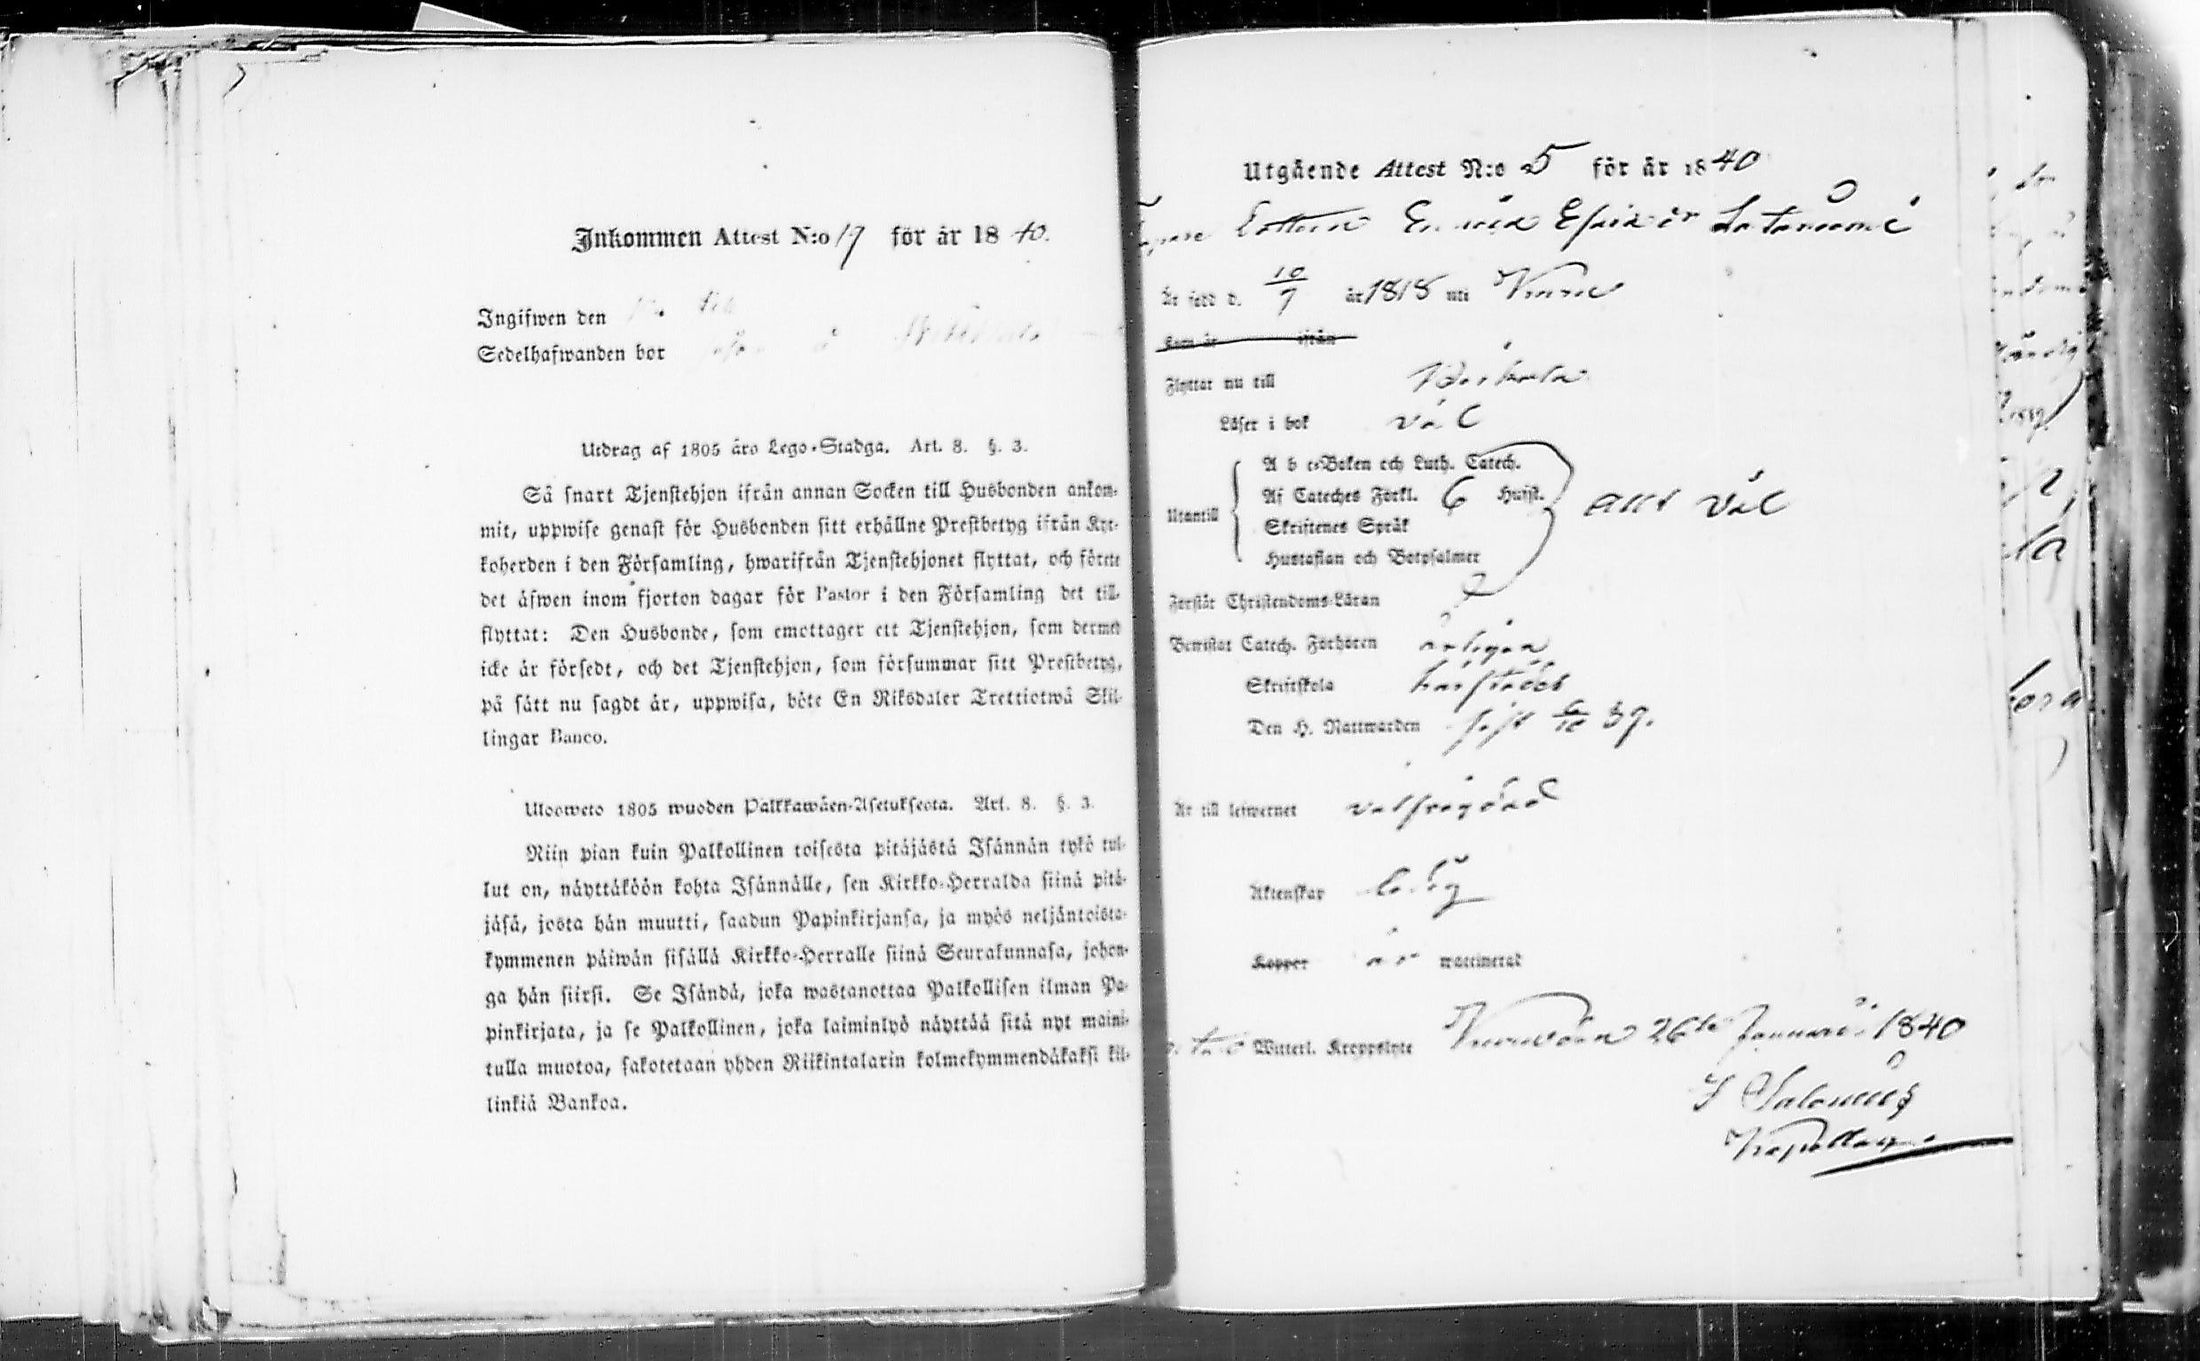 Inkommen Attest N:o 19 för år 1840.
Ingifwen den
Sedelhafwanden bor
Utdrag af 1805 års Lego-Stadga. Art. 8. §. 3.
Så snart Tjenstehjon ifrån annan Socken till Husbonden ankom-
mit, uppwise genast för Husbonden sitt erhållne Prestbetyg ifrån Kyr-
koherden i den Församling, hwarifrån Tjenstehjonet flyttat, och förete
det äfwen inom fjorton dagar för Pastor i den Församling det till-
flyttat: Den Husbonde, som emottager ett Tjenstehjon, som dermed
icke är försedt, och det Tjenstehjon, som försummar sitt Prestbetyg,
på sätt nu sagdt är, uppwisa, böte En Riksdaler Trettiotwå Skil-
lingar Banco.
Ulosweto 1805 wuoden Palkkawäen-Asetuksesta. Art. 8. §. 3.
Niin pian kuin Palkollinen toisesta pitäjästä Isännän tykö tul-
lut on, näyttäköön kohta Isännälle, sen Kirkko-Herralda siinä pitä-
jäsä, josta hän muutti, saadun Papinkirjansa, ja myös neljäntoista-
kymmenen päiwän sisällä Kirkko-Herralle siinä Seurakunnasa, johon-
ga hän siirsi. Se Isändä, joka wastanottaa Palkollisen ilman Pa-
pinkirjata, ja se Palkollinen, joka laiminlyö näyttää sitä nyt maini-
tulla muotoa, sakotetaan yhden Riikintalarin kolmekymmendäkaksi kil-
linkiä Bankoa.
Utgående Attest N:o 5 för år 1840
Är född d. 10/7 år 1818 uti
Kom år ifrån
Flyttar nu till
Läser i bok väl
Utantill
A b c-Boken och Luth. Catech.
Af Cateches Förkl. 6 Hufst. allt väl
Skriftenes Språk
Hustaflan och Botpsalmer
Förstår Christendoms-Läran
Bewistat Catech. Förhören årligen
Skriftskola härstädes
Den H. Nattwarden sist 6/10 39.
Är till lefwernet välfrägdad
Äktenskap ledig
Koppor är waccinerad
Witterl. Kroppslyte
26te Januarii 1840